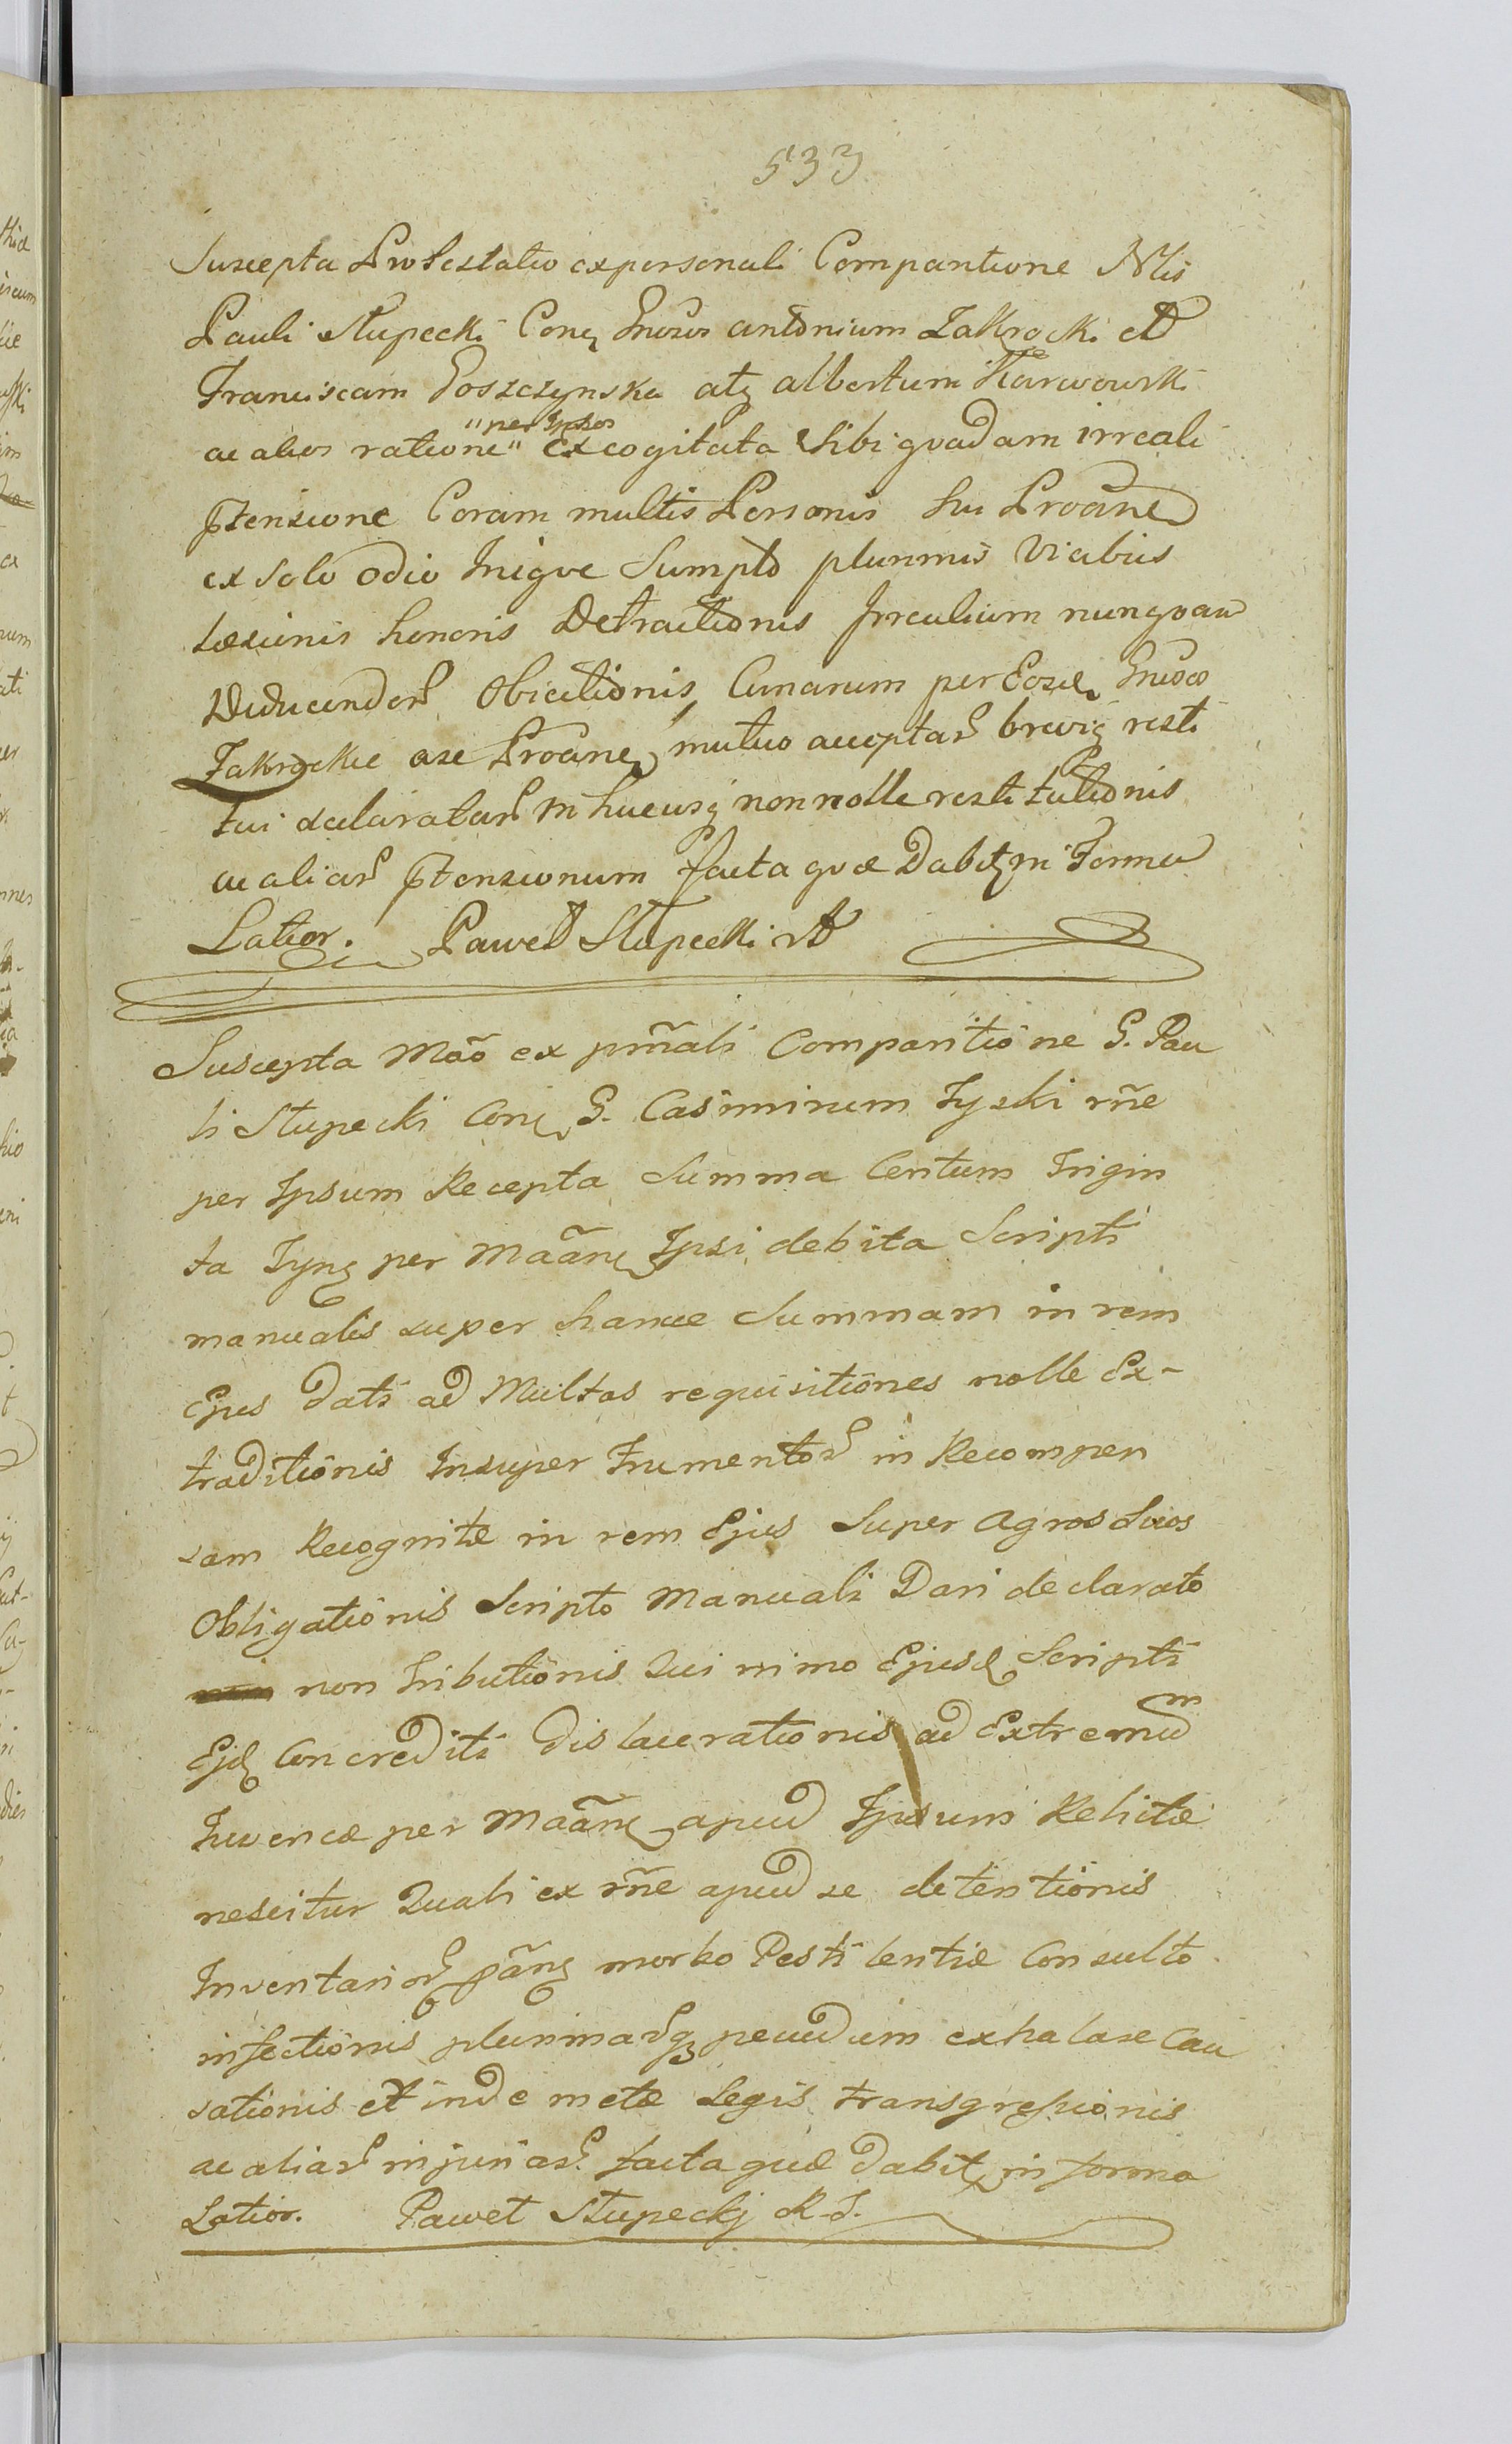 533
Suscepta Protestatio ex personali Comparitione Nlis
Pauli Słupecki Conq Gnosos antonium Zakrocki et
Franciscam Goszczynska atq albertum Karwowski
ac alios ratione "per Ipsos" excogitata sibi qvadam irreali
ptensione Coram multis Personis sui Proane
ex solo odio Iniqve Sumpto plurimis Vicibus
Læsionis honoris Detractionis Irrealium nunqvam
Deducendor Obiectionis, Cunarum per Eosd Gnosos
Zakrockie a se Proane mutuo acceptar brevi resti
tui declaratar in hucusq non nolle restitutionis
ac aliar ptensionum facta qvæ Dabit in Forma
Latior. Paweł Słupecki
Suscepta Mão ex pñali Comparitione G. Pau
li Słupecki Conq G. Casimirum Zyski rñe
per Ipsum Recepta Summa Centum Trigin
ta Tynf per Maãnq Ipsi debita Scripti
manualis super hance Summam in rem
Ejus dati ad Multas requisitiones nolle Ex-
traditionis Insuper Frumentor in Recompen
sam Recognitæ in rem Ejus Super Agros Suos
Obligationis Scripto Manuali Dari declarato
non tributionis Qui nimo Ejusd Scripti
Ejd Concrediti dislacerationis ad Extremum
Juvencæ per Maãnq apud Ipsum Relictæ
nescitur Quali ex rñe apud se detentionis
Inventarior pãnq morbo Pestilentiæ Consulto
infectionis plurimarq pecudum exhalase Cau
sationis et inde metæ Legis transgressionis
ac aliar injuriar. facta quæ dabit in forma
Latior. Paweł Słupeckj